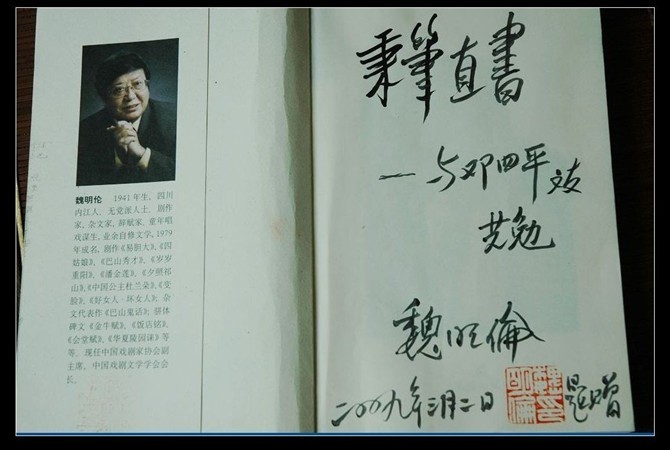 魏明伦 1941年生,四川
内江人。无党派人士,剧作
家、杂文家、辞赋家。童年唱
戏谋生,业余自修文学,1979
年成名。剧作《易胆大》、《四
姑娘》、《巴山秀才》、《岁岁
重阳》、《潘金莲》、《夕照祁
山》、《中国公主杜兰朵》、《变
脸》、《好女人·坏女人》;杂
文代表作《巴山鬼话》;骈体
碑文《金牛赋》、《饭店铭》、
《会堂赋》、《华夏陵园诔》等
等。现任中国戏剧家协会副
主席,中国戏剧文学学会会
长。
秉筆直書
—与邓四平友
共勉
魏明倫
二00九年三月二日
魏明倫印
题赠